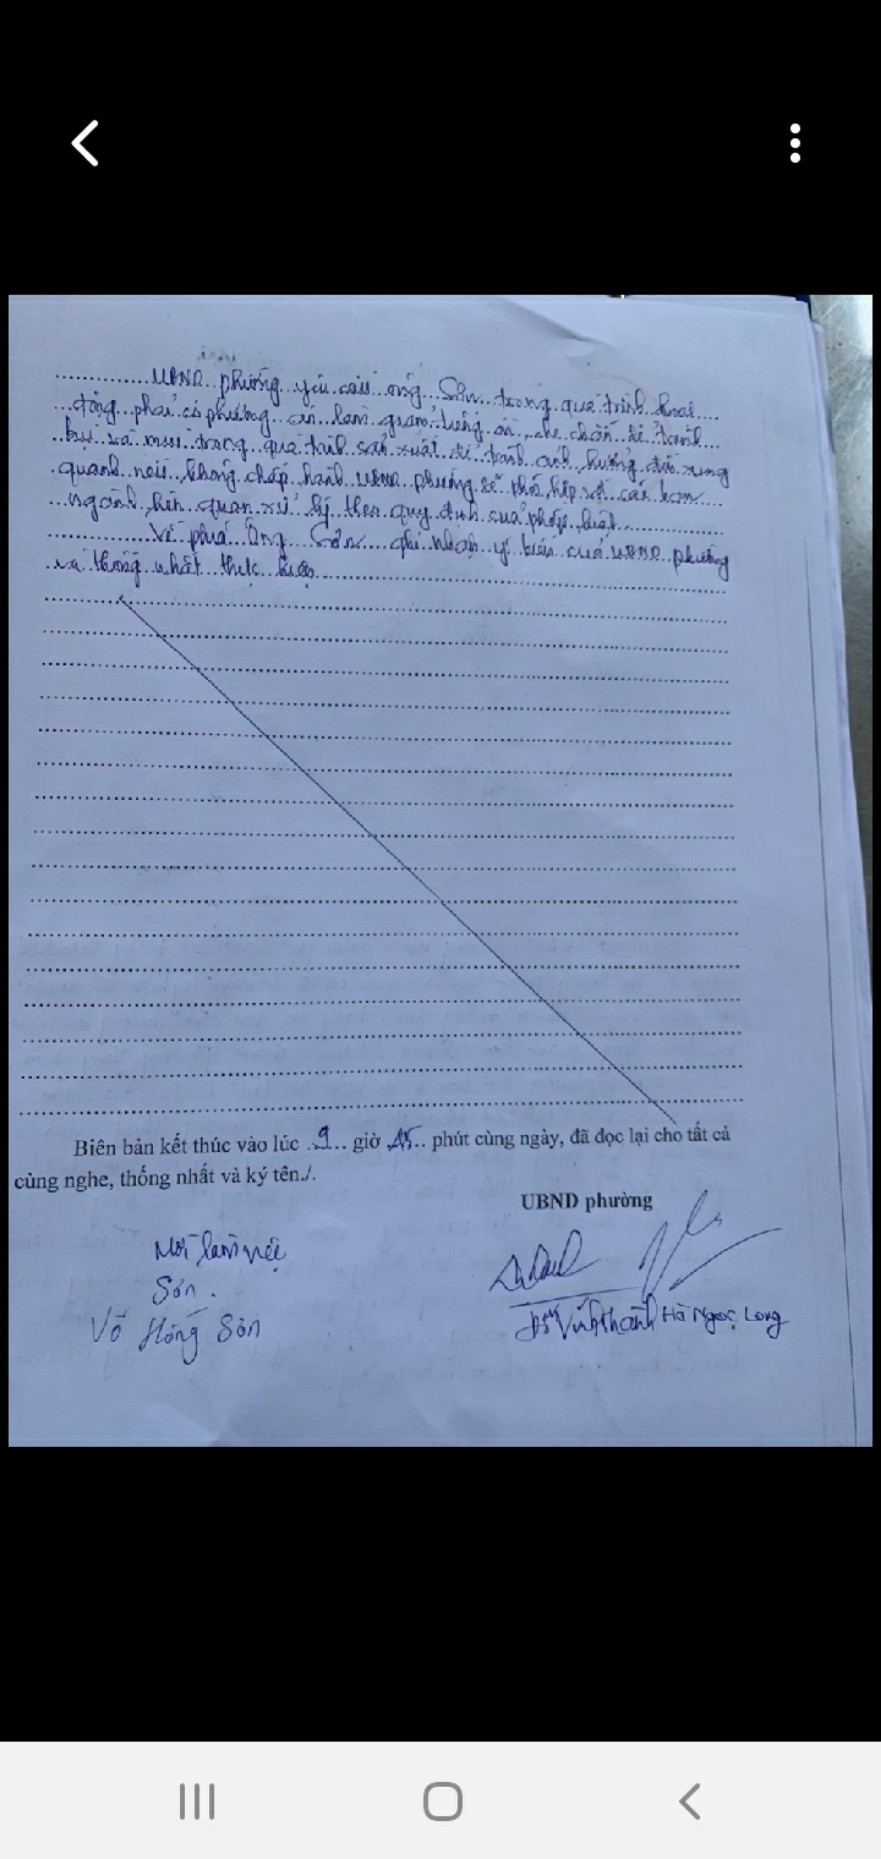 UBND phường yêu cầu ông Sơn trong quá trình hoạt
động phải có phương án làm giảm tiếng ồn, che chắn để tránh
bụi và mùi trong quá trình sản xuất để tránh ảnh hưởng đến xung
quanh nếu không chấp hành UBND phường sẽ phối hợp với các ban
ngành liên quan xử lý theo quy định của pháp luật
Về phía Ông Sơn ghi nhận ý kiến của UBND phường
và thống nhất thực hiện
Biên bản kết thúc vào lúc 9 giờ 15 phút cùng ngày, đã đọc lại cho tất cả
cùng nghe, thống nhất và ký tên./.
UBND phường
Người làm việc
Sơn.
Võ Hồng Sơn
Vĩnh Thành Hà Ngọc Long